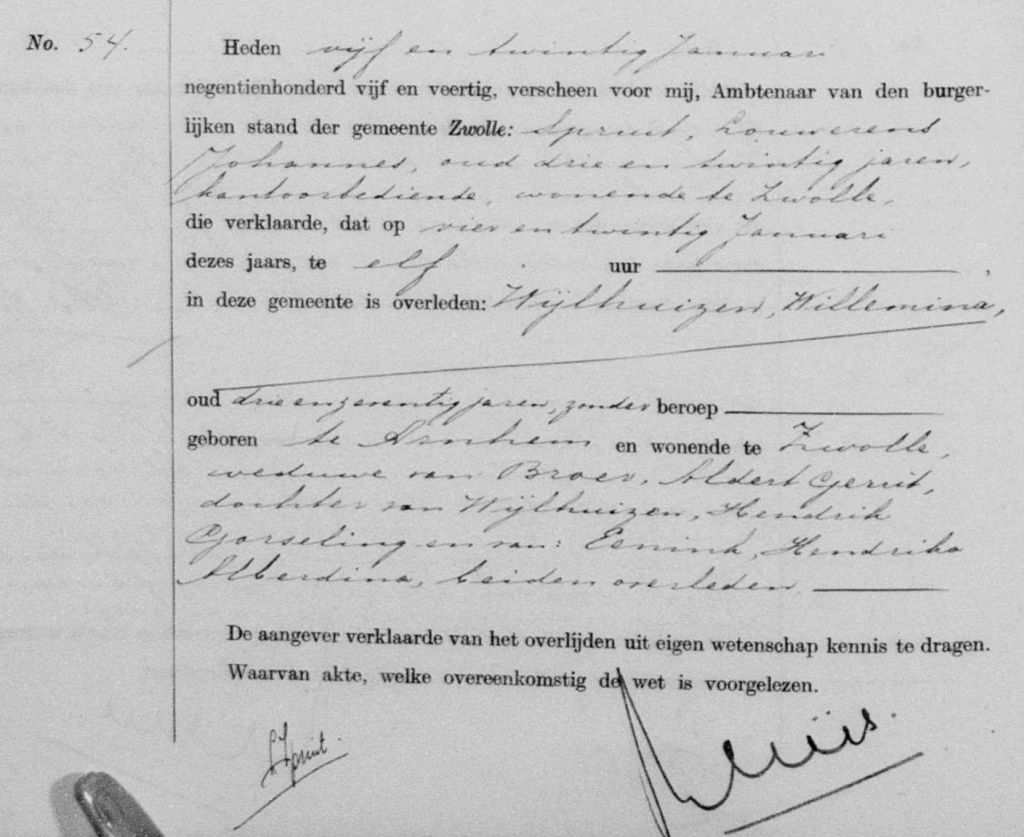 No. 54.
Heden vijf en twintig Januari
negentienhonderd vijf en veertig, verscheen voor mij, Ambtenaar van den burger-
lijken stand der gemeente Zwolle: Spruit, Louwerens
Johannes, oud drie en twintig jaren,
kantoorbediende, wonende te Zwolle,
die verklaarde, dat op vier en twintig Januari
dezes jaars, te elf uur ,
in deze gemeente is overleden: Wijlhuizen, Willemina,
oud drie en zeventig jaren, zonder beroep
geboren te Arnhem en wonende te Zwolle,
weduwe van Broer, Aldert Gerrit,
dochter van Wijlhuizen, Hendrik
Gorseling en van: Eenink, Hendrika
Alberdina, beiden overleden
De aangever verklaarde van het overlijden uit eigen wetenschap kennis te dragen.
Waarvan akte, welke overeenkomstig de wet is voorgelezen.
L Spruit.